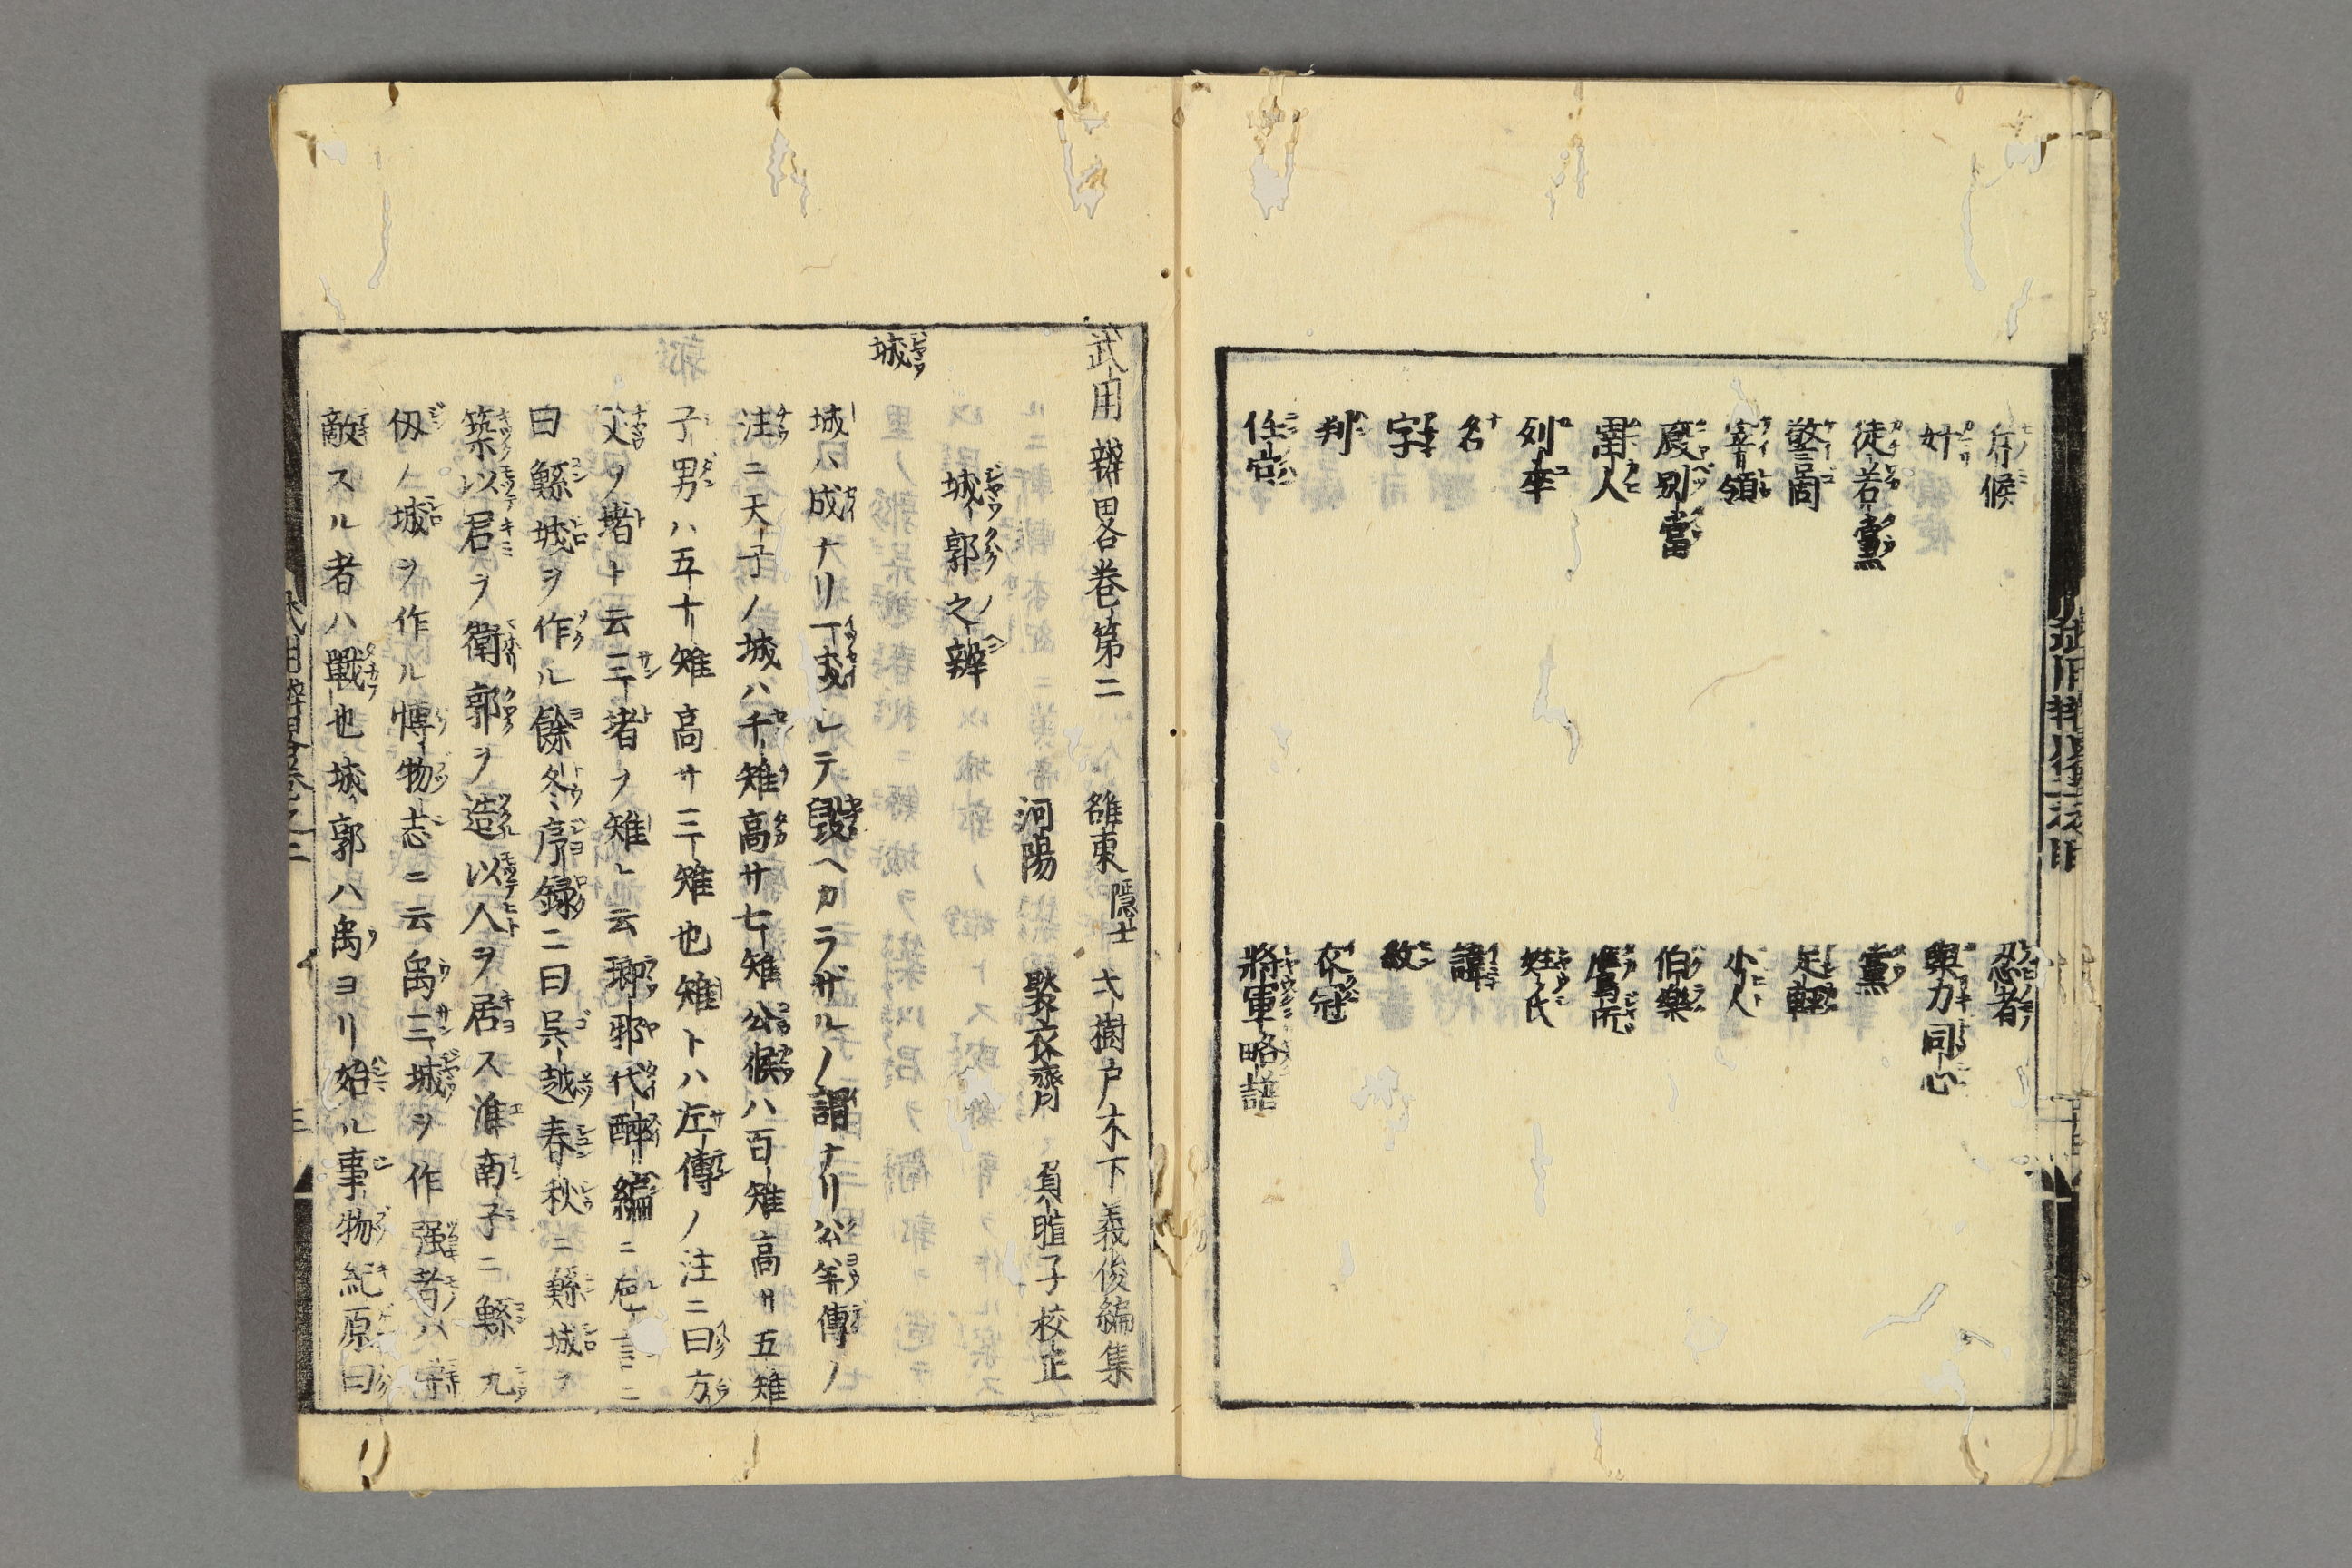 斥候 忍者
奸 與力同心
徒若黨 黨
警固 足輕
寄領 小人
廐別當 伯樂
雨人 鷹所
列卒 姓氏
名 諱
字 紋
判 衣冠
任官 將軍略譜
武用辨畧巻第二 雒東隱士 弌樹戸木下義俊編集
河陽 褧衣齊 負暄子校正
城郭之辨
城
城ハ成ナリ一成シテ毀ヘカラザルノ謂ナリ公羊傳ノ
注ニ天子ノ城ハ千雉高サ七雉公侯ハ百雉高サ五雉
子男ハ五十雉高サ三雉也雉トハ左傳ノ注ニ曰方
丈ヲ堵ト云三堵ヲ雉ト云瑯邪代醉編ニ
曰鯀城ヲ作ル餘冬序録ニ曰呉越春秋ニ鯀城ヲ
築以君ヲ衛郭ヲ造以人ヲ居ス淮南子ニ鯀九
仭ノ城ヲ作ル博物志ニ云禹三城ヲ作強者ハ
敵スル者ハ戰也城郭ハ禹ヨリ始ル事物紀原曰
武用辨畧巻之二